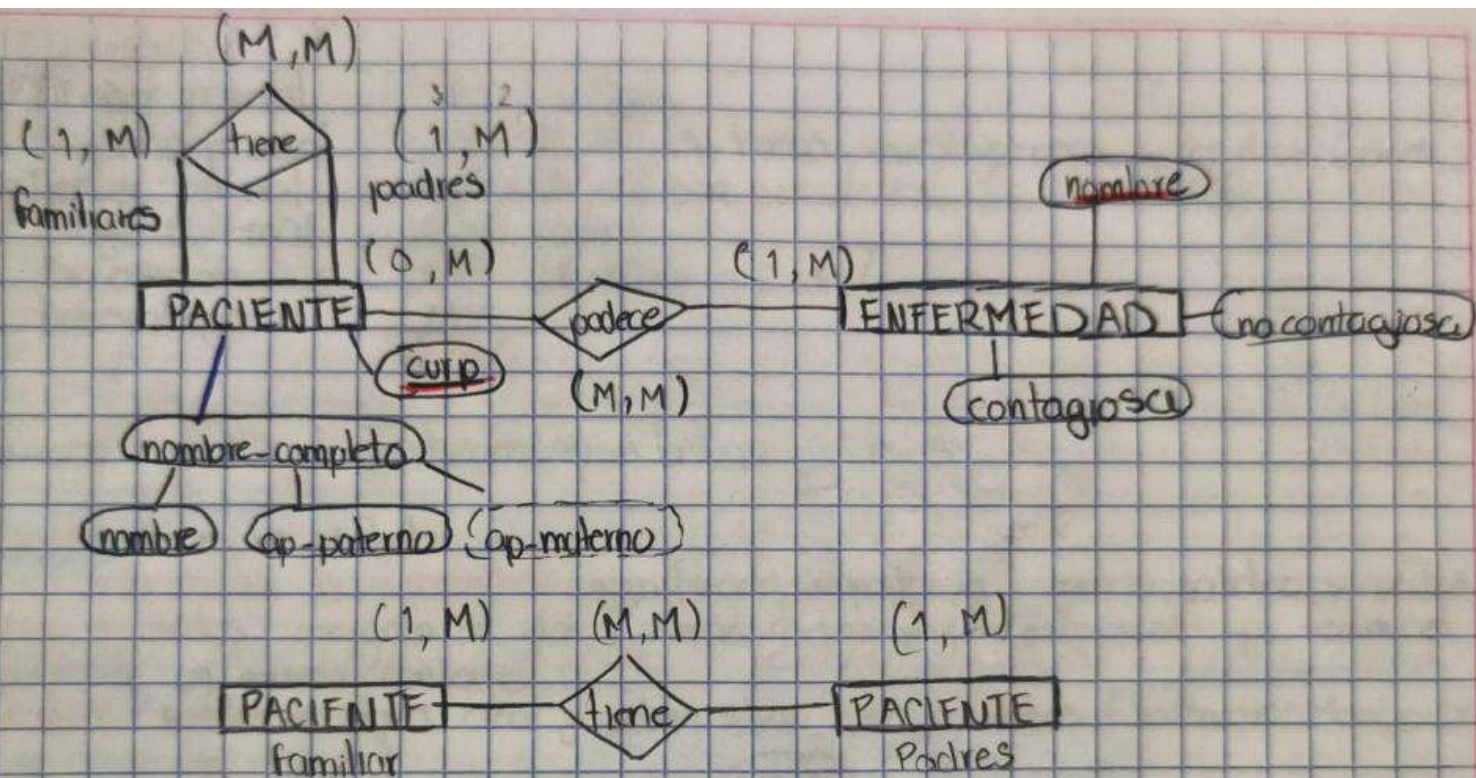 (M,M)
(1, M) tiene (1, M)
familiares padres
(0, M) (1, M)
nombre
PACIENTE padece ENFERMEDAD no contagiosa
curp
(M,M) contagiosa
nombre-completo
nombre ap-paterno ap-materno
(1, M) (M,M) (1, M)
PACIENTE tiene PACIENTE
familiar Padres